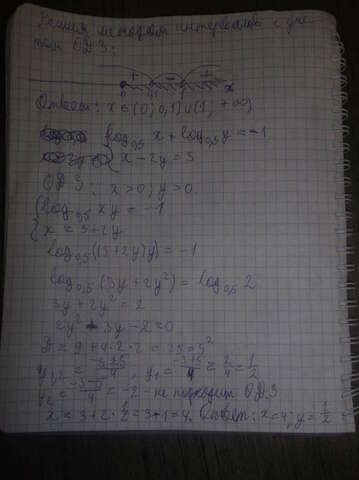 Решим методом интервалов с учё-
том ОДЗ:
+ - +
0 x
Ответ: x ∈ (0; 0,1) ∪ (1; +∞)
{ log₀,₅ x + log₀,₅ y = -1
x - 2y = 3
ОДЗ: x > 0; y > 0.
{ log₀,₅ xy = -1
x = 3 + 2y
log₀,₅ ((3 + 2y)y) = -1
log₀,₅ (3y + 2y²) = log₀,₅ 2
3y + 2y² = 2
2y² + 3y - 2 = 0
D = 9 + 4·2·2 = 25 = 5²
y₁,₂ = (-3±5)/4, y₁ = (-3+5)/4 = 2/4 = 1/2
y₂ = (-3-5)/4 = -2 - не подходит ОДЗ
x = 3 + 2·1/2 = 3 + 1 = 4. Ответ: x = 4; y = 1/2